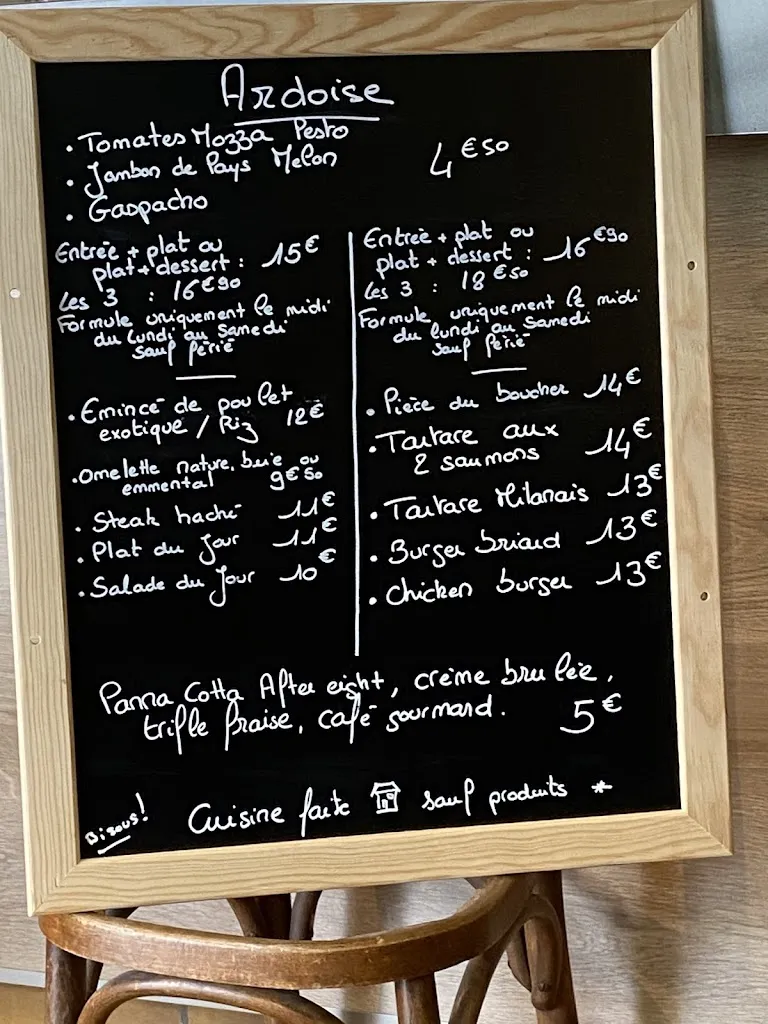 Ardoise
. Tomates Mozza Pesto
. Jambon de Pays Melon
4€50
. Gaspacho
Entrée + plat ou
plat + dessert : 15€
Les 3 : 16€90
Formule uniquement le midi
du lundi au samedi
sauf férié
. Emincé de poulet
exotique / Riz 12€
. Omelette nature, brie ou
emmental 9€50
. Steak haché 11€
. Plat du Jour 11€
. Salade du Jour 10€
Entrée + plat ou
plat + dessert : 16€90
Les 3 : 18€50
Formule uniquement le midi
du lundi au samedi
sauf férié
. Pièce du boucher 14€
. Tartare aux
2 saumons 14€
. Tartare Milanais 13€
. Burger briard 13€
. Chicken burger 13€
Panna Cotta After eight, crème brulée,
trifle fraise, café gourmand. 5€
Bisous!
Cuisine faite sauf produits *